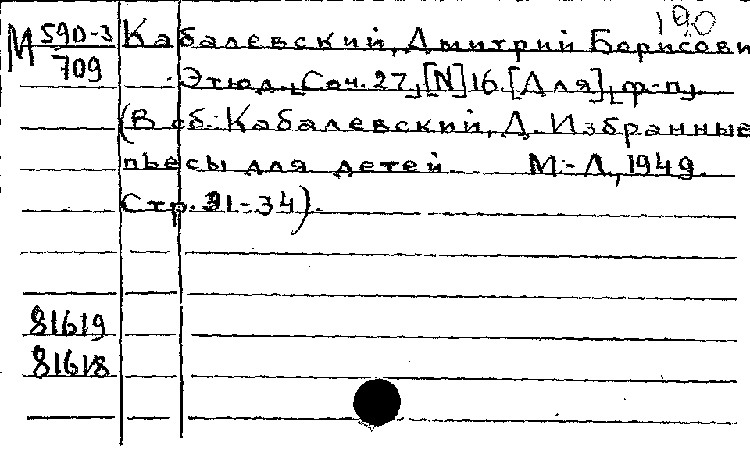 190
М 590-3
709
Кабалевский, Дмитрий Борисови
Этюд. Соч. 27, [N] 16. [Для] ф-п.
(В сб.: Кабалевский, Д. Избранные
пьесы для детей М.-Л., 1949.
Стр. 31-34).
81619
81618